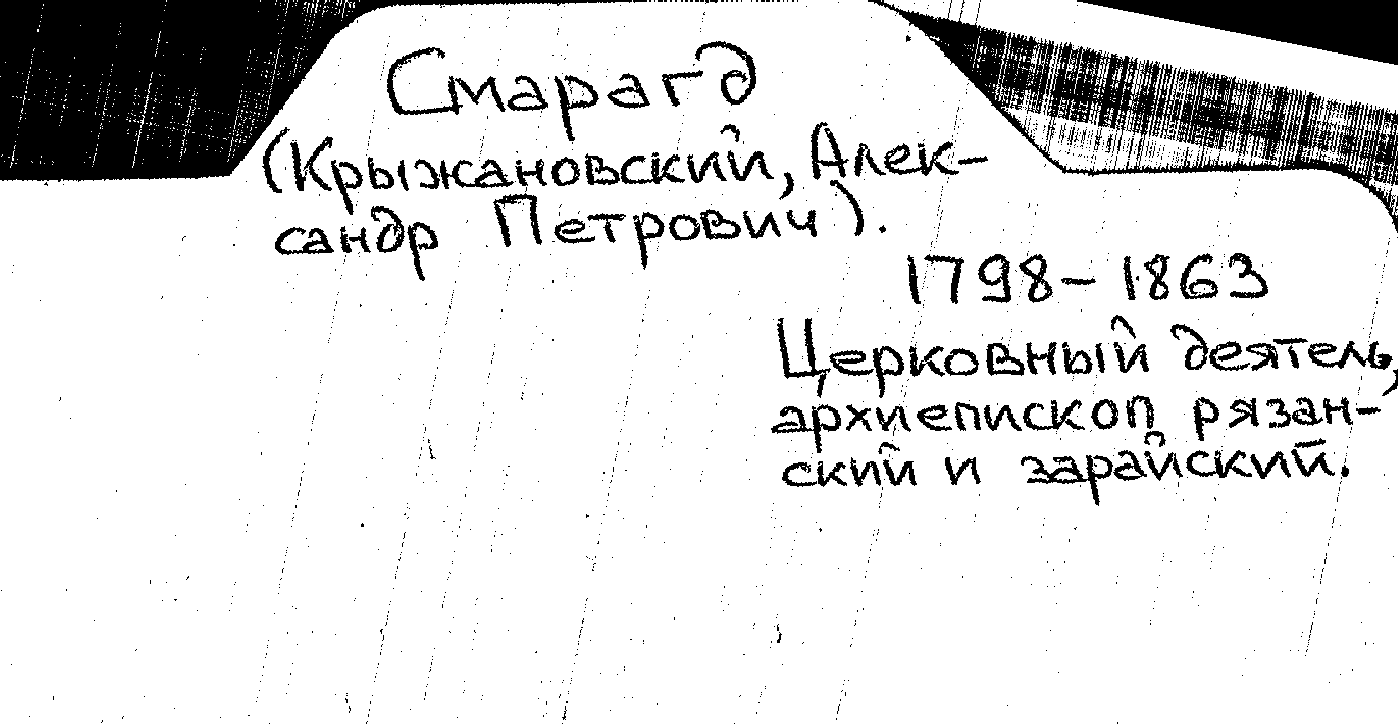 Смарагд
(Крыжановский, Алек-
сандр Петрович).
1798-1863
Церковный деятель,
архиепископ рязан-
ский и зарайский.